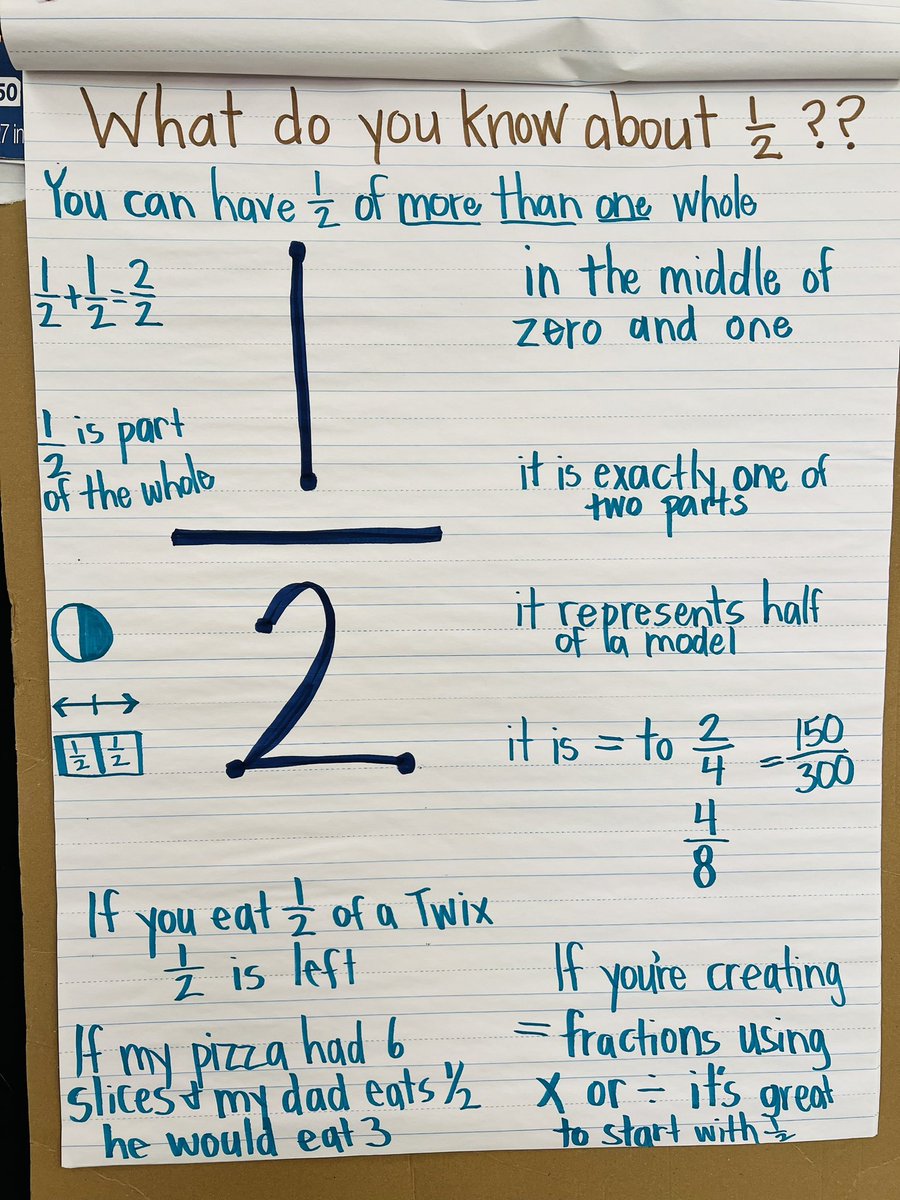 50
7 in
What do you know about 1/2 ??
You can have 1/2 of more than one whole
1/2 + 1/2 = 2/2
in the middle of
zero and one
1/2 is part
of the whole
1/2
it is exactly one of
two parts
it represents half
of a model
1/2 1/2
it is = to 2/4 = 150/300
4/8
If you eat 1/2 of a Twix
1/2 is left
If my pizza had 6
slices + my dad eats 1/2
he would eat 3
If you're creating
= fractions using
x or ÷ it's great
to start with 1/2